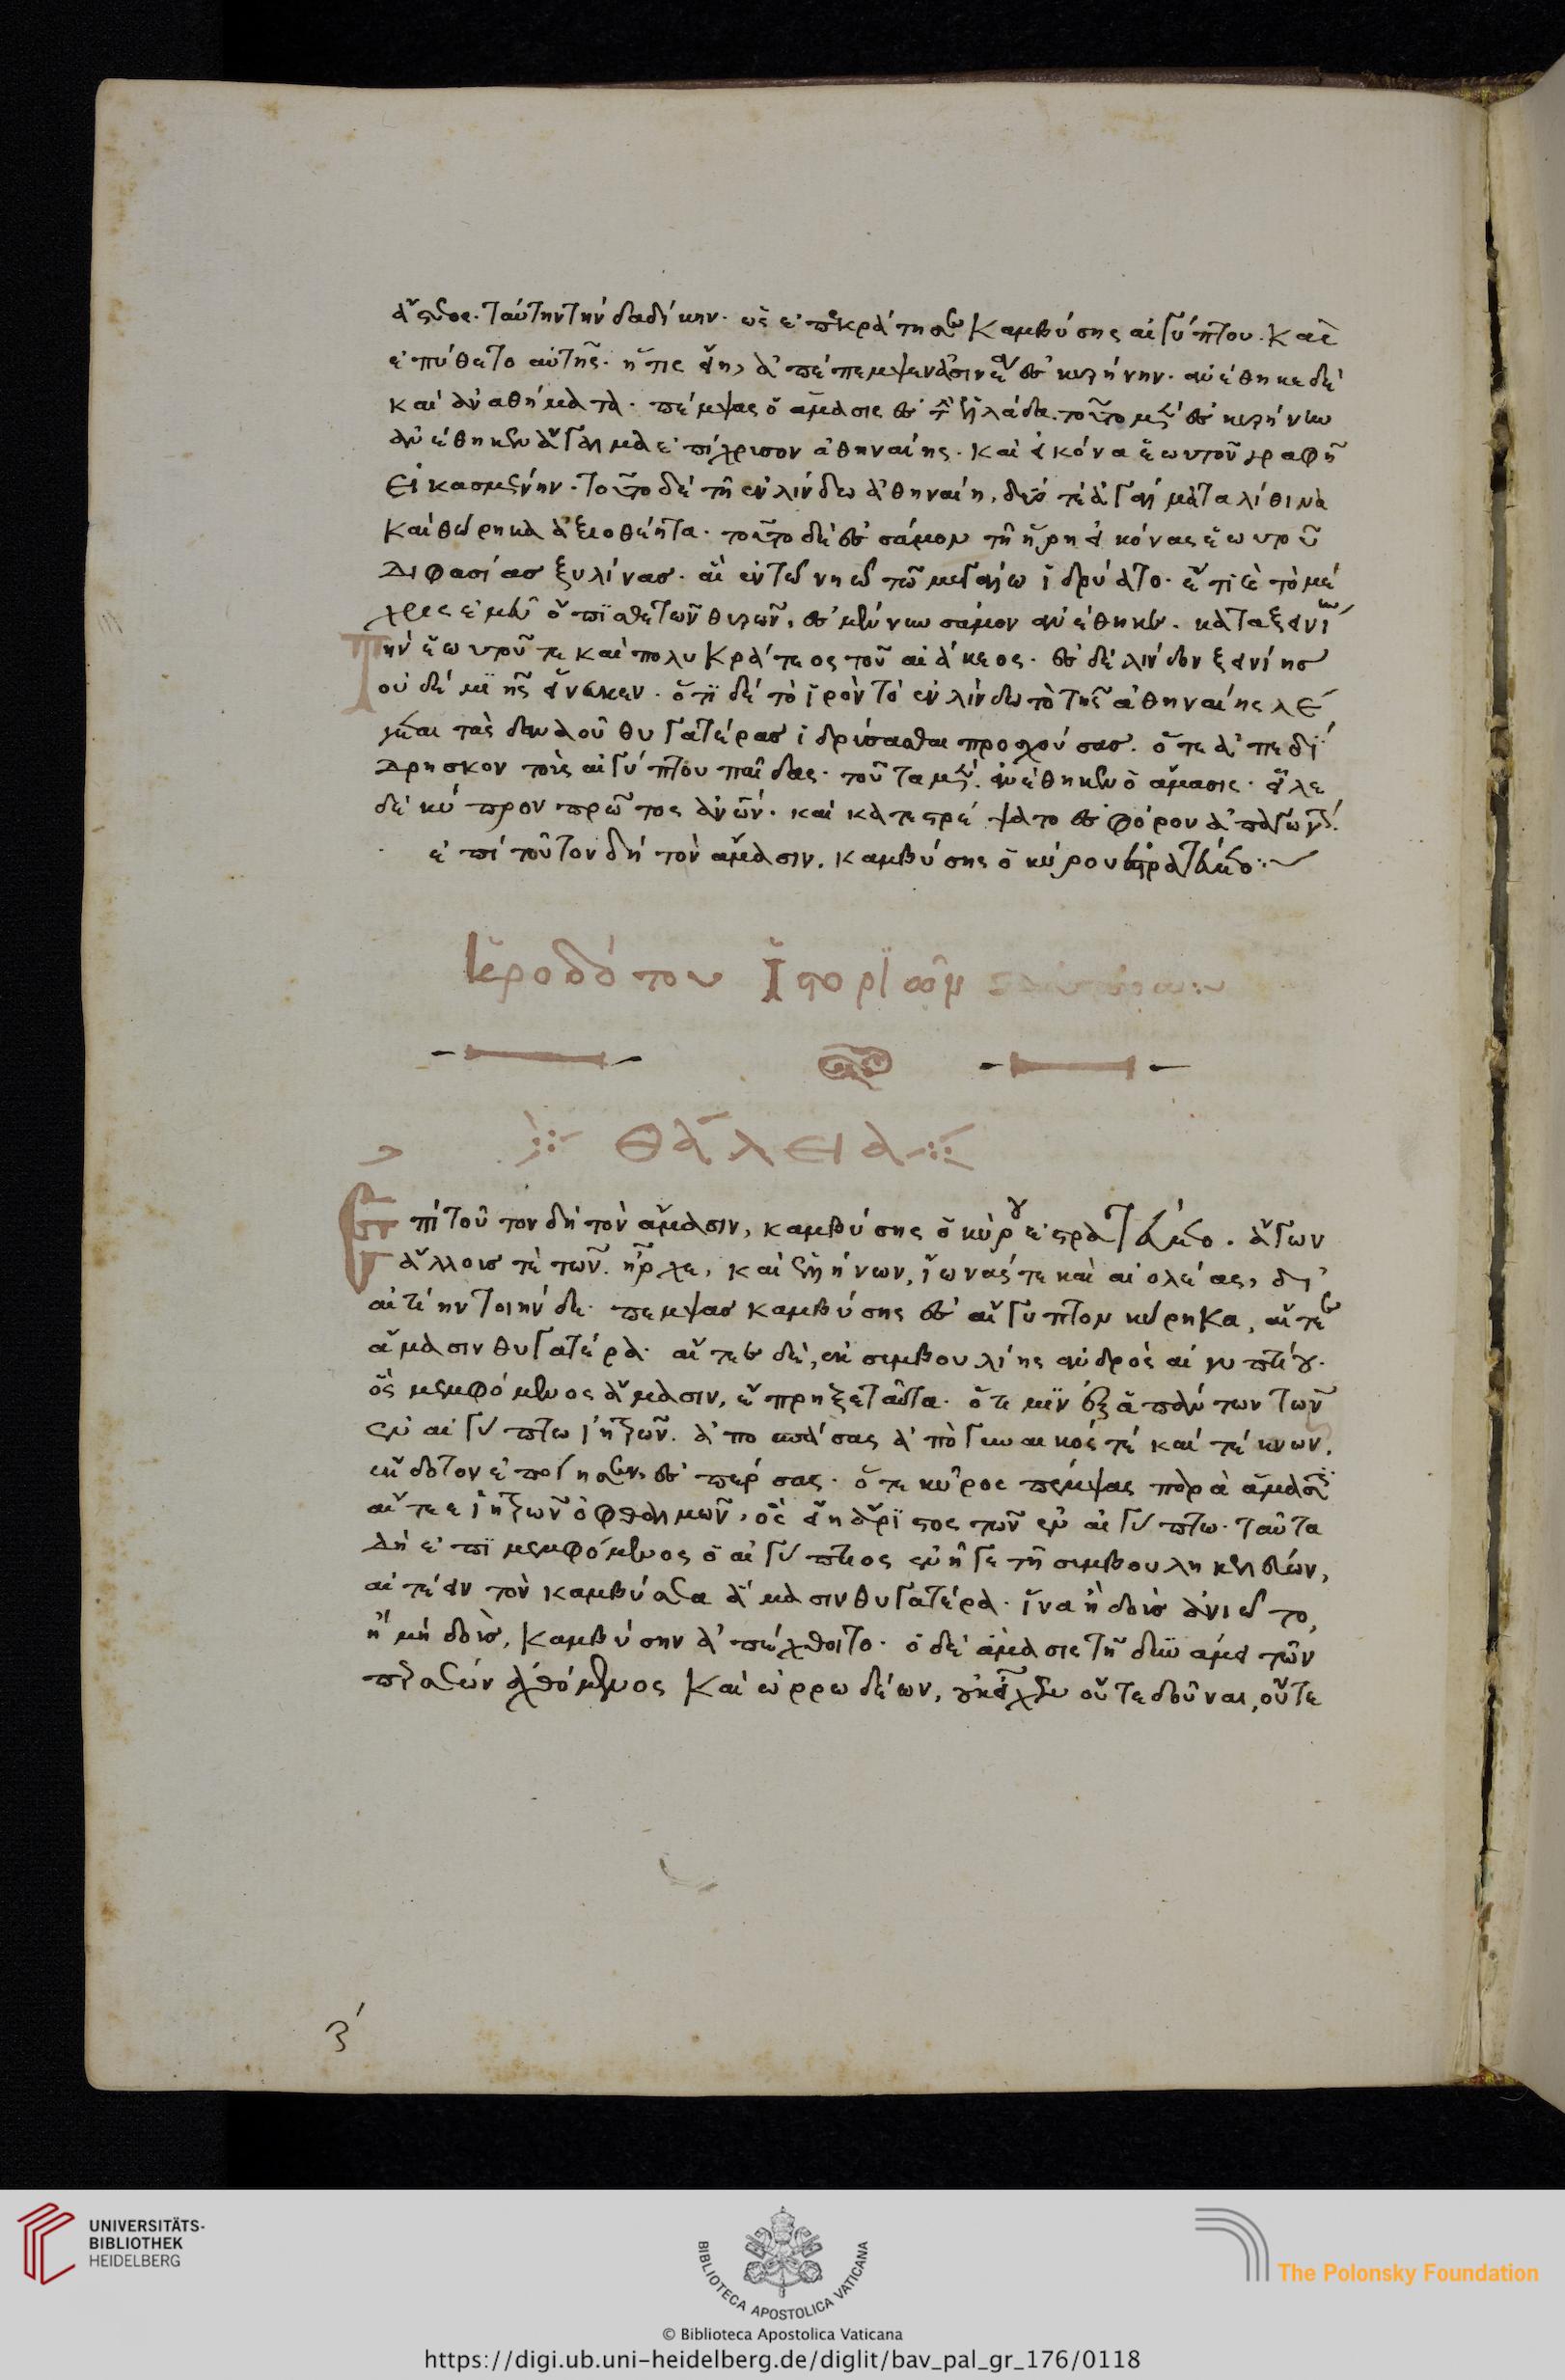 ἄστεος. ταύτην τὴν λαδίκην. ὡς ἐπεκράτησε Καμβύσης αἰγύπτου. Καὶ
ἐπύθετο αὐτῆς. ἥτις εἴη, ἀπέπεμψεν ἀσινέα ἐς κυρήνην. ἀνέθηκε δὲ
καὶ ἀναθήματα. πέμψας ὁ ἄμασις ἐς τὴν ἑλλάδα. τοῦτο μὲν ἐς κυρήνην
ἀνέθηκεν ἄγαλμα ἐπίχρισον ἀθηναίης. καὶ εἰκόνα ἑωυτοῦ γραφῇ
Εἰκασμένην. τοῦτο δὲ τῇ ἐν λίνδω ἀθηναίη, δύο τὲ ἀγάλματα λίθινα
Καὶ θώρηκα ἀξιοθέητα. τοῦτο δὲ ἐς σάμον τῇ ἥρη εἰκόνας ἑωυτοῦ
Διφασίας ξυλίνας. αἳ ἐν τῶ νηῶ τῶ μεγάλω ἱδρύατο. ἔτι τὸ μέ
χρις ἐμεῦ ὄπισθε τῶν θυρέων, ἐς μέν νυν σάμον ἀνέθηκεν. κατὰ ξεινίην
τὴν ἑωυτοῦ τε καὶ πολυκράτεος τοῦ αἰάκεος. ἐς δὲ λίνδον ξεινίης
οὐδεμιῆς εἵνεκεν. ὅτι δὲ τὸ ἱρὸν τὸ ἐν λίνδω τὸ τῆς ἀθηναίης λέ
γεται τὰς δαναοῦ θυγατέρας ἱδρύσασθαι προσχούσας. ὅτε ἀπεδί
Δρησκον τοὺς αἰγύπτου παῖδας. τοῦτα μὲν. ἀνέθηκεν ὁ ἄμασις. εἷλε
δὲ κύπρον πρῶτος ἀνῶν. καὶ κατεστρέψατο ἐς φόρου ἀπαγωγήν.
ἐπὶ τοῦτον δὴ τὸν ἄμασιν. καμβύσης ὁ κύρου ἐστρατεύετο
Ἡροδότου Ἱστοριῶν
θάλεια
Ἐπὶ τοῦτον δὴ τὸν ἄμασιν, καμβύσης ὁ κύρου ἐστρατεύετο. ἄγων
ἄλλους τὲ τῶν ἦρχε, καὶ ἑλλήνων, ἴωνάς τε καὶ αἰολέας, δι'
αἰτίην τοιήνδε. πέμψας καμβύσης ἐς αἴγυπτον κήρηκα, αἴτεε
ἄμασιν θυγατέρα. αἴτεε δὲ, ἐκ συμβουλίης ἀνδρὸς αἰγυπτίου.
ὃς μεμφόμενος ἄμασιν, ἔπρηξε ταῦτα. ὅτι μιν ἐξ ἁπάντων τῶν
ἐν αἰγύπτω ἰητρῶν. ἀποσπάσας ἀπὸ γυναικός τὲ καὶ τέκνων.
ἔκδοτον ἐποίησεν ἐς πέρσας. ὅτε κῦρος πέμψας παρὰ ἄμασιν
αἴτεε ἰητρὸν ὀφθαλμῶν, ὃς εἴη ἄριστος τῶν ἐν αἰγύπτω. ταῦτα
δὴ ἐπιμεμφόμενος ὁ αἰγύπτιος ἐνῆγε τῇ συμβουλῆ κελεύων,
αἰτέειν τὸν καμβύσεα ἄμασιν θυγατέρα. ἵνα ἢ δοὺς ἀνιῶτο,
ἢ μὴ δοὺς, Καμβύσην ἀπέχθοιτο. ὁ δὲ ἄμασις τῇ δυνάμει τῶν
περσέων ἀχθόμενος Καὶ ἀρρωδέων, οὐκ εἶχεν οὔτε δοῦναι, οὔτε
UNIVERSITÄTS-
BIBLIOTHEK
HEIDELBERG
BIBLIOTECA APOSTOLICA VATICANA
The Polonsky Foundation
© Biblioteca Apostolica Vaticana
https://digi.ub.uni-heidelberg.de/diglit/bav_pal_gr_176/0118